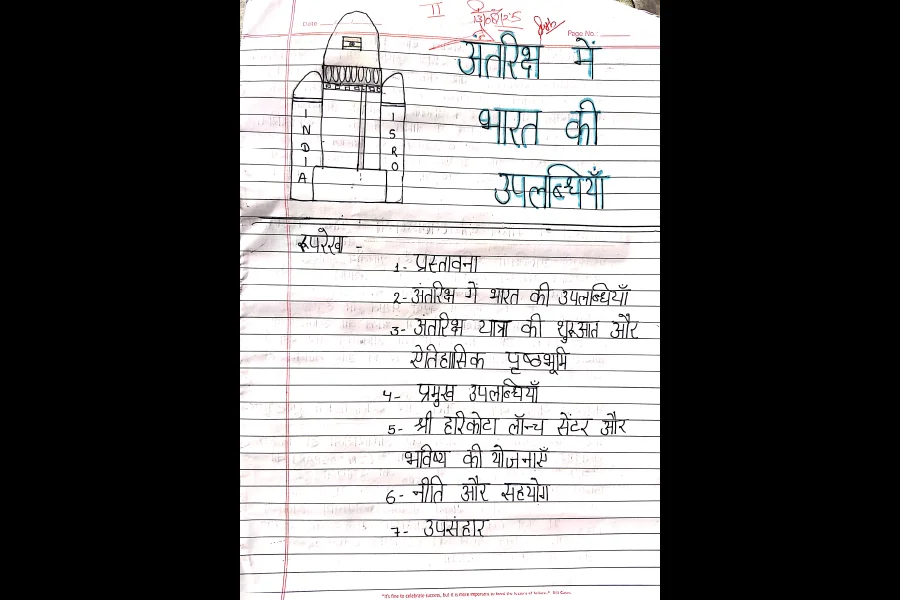 II
Date
Page No.:
अंतरिक्ष में
भारत की
उपलब्धियाँ
INDIA
ISRO
रूपरेख -
1- प्रस्तावना
2- अंतरिक्ष में भारत की उपलब्धियाँ
3- अंतरिक्ष यात्रा की शुरूआत और
ऐतिहासिक पृष्ठभूमि
4- प्रमुख उपलब्धियाँ
5- श्री हरिकोटा लॉन्च सेंटर और
भविष्य की योजनाएँ
6- नीति और सहयोग
7- उपसंहार
"It's fine to celebrate success, but it is more important to heed the lessons of failure." Bill Gates